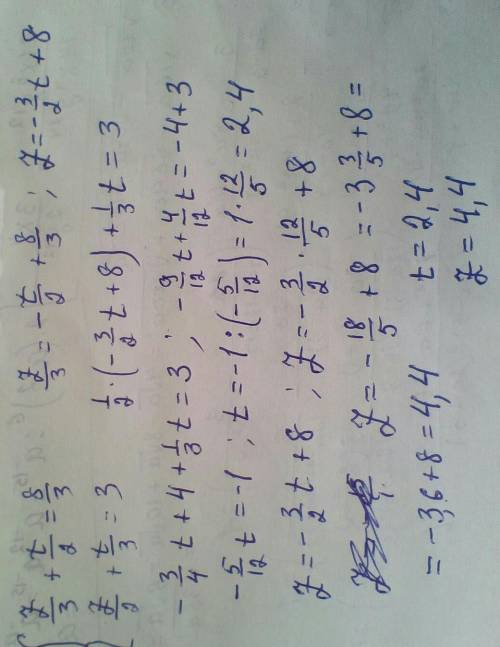 { z/3 + t/2 = 8/3    z/3 = -t/2 + 8/3 ; z = -3/2 t + 8
z/2 + t/3 = 3    1/2 · (-3/2 t + 8) + 1/3 t = 3
-3/4 t + 4 + 1/3 t = 3 ; -9/12 t + 4/12 t = -4 + 3
-5/12 t = -1 ; t = -1 : (-5/12) = 1 · 12/5 = 2,4
z = -3/2 t + 8 ; z = -3/2 · 12/5 + 8
z = -18/5 + 8 = -3 3/5 + 8 =
= -3,6 + 8 = 4,4    t = 2,4
z = 4,4